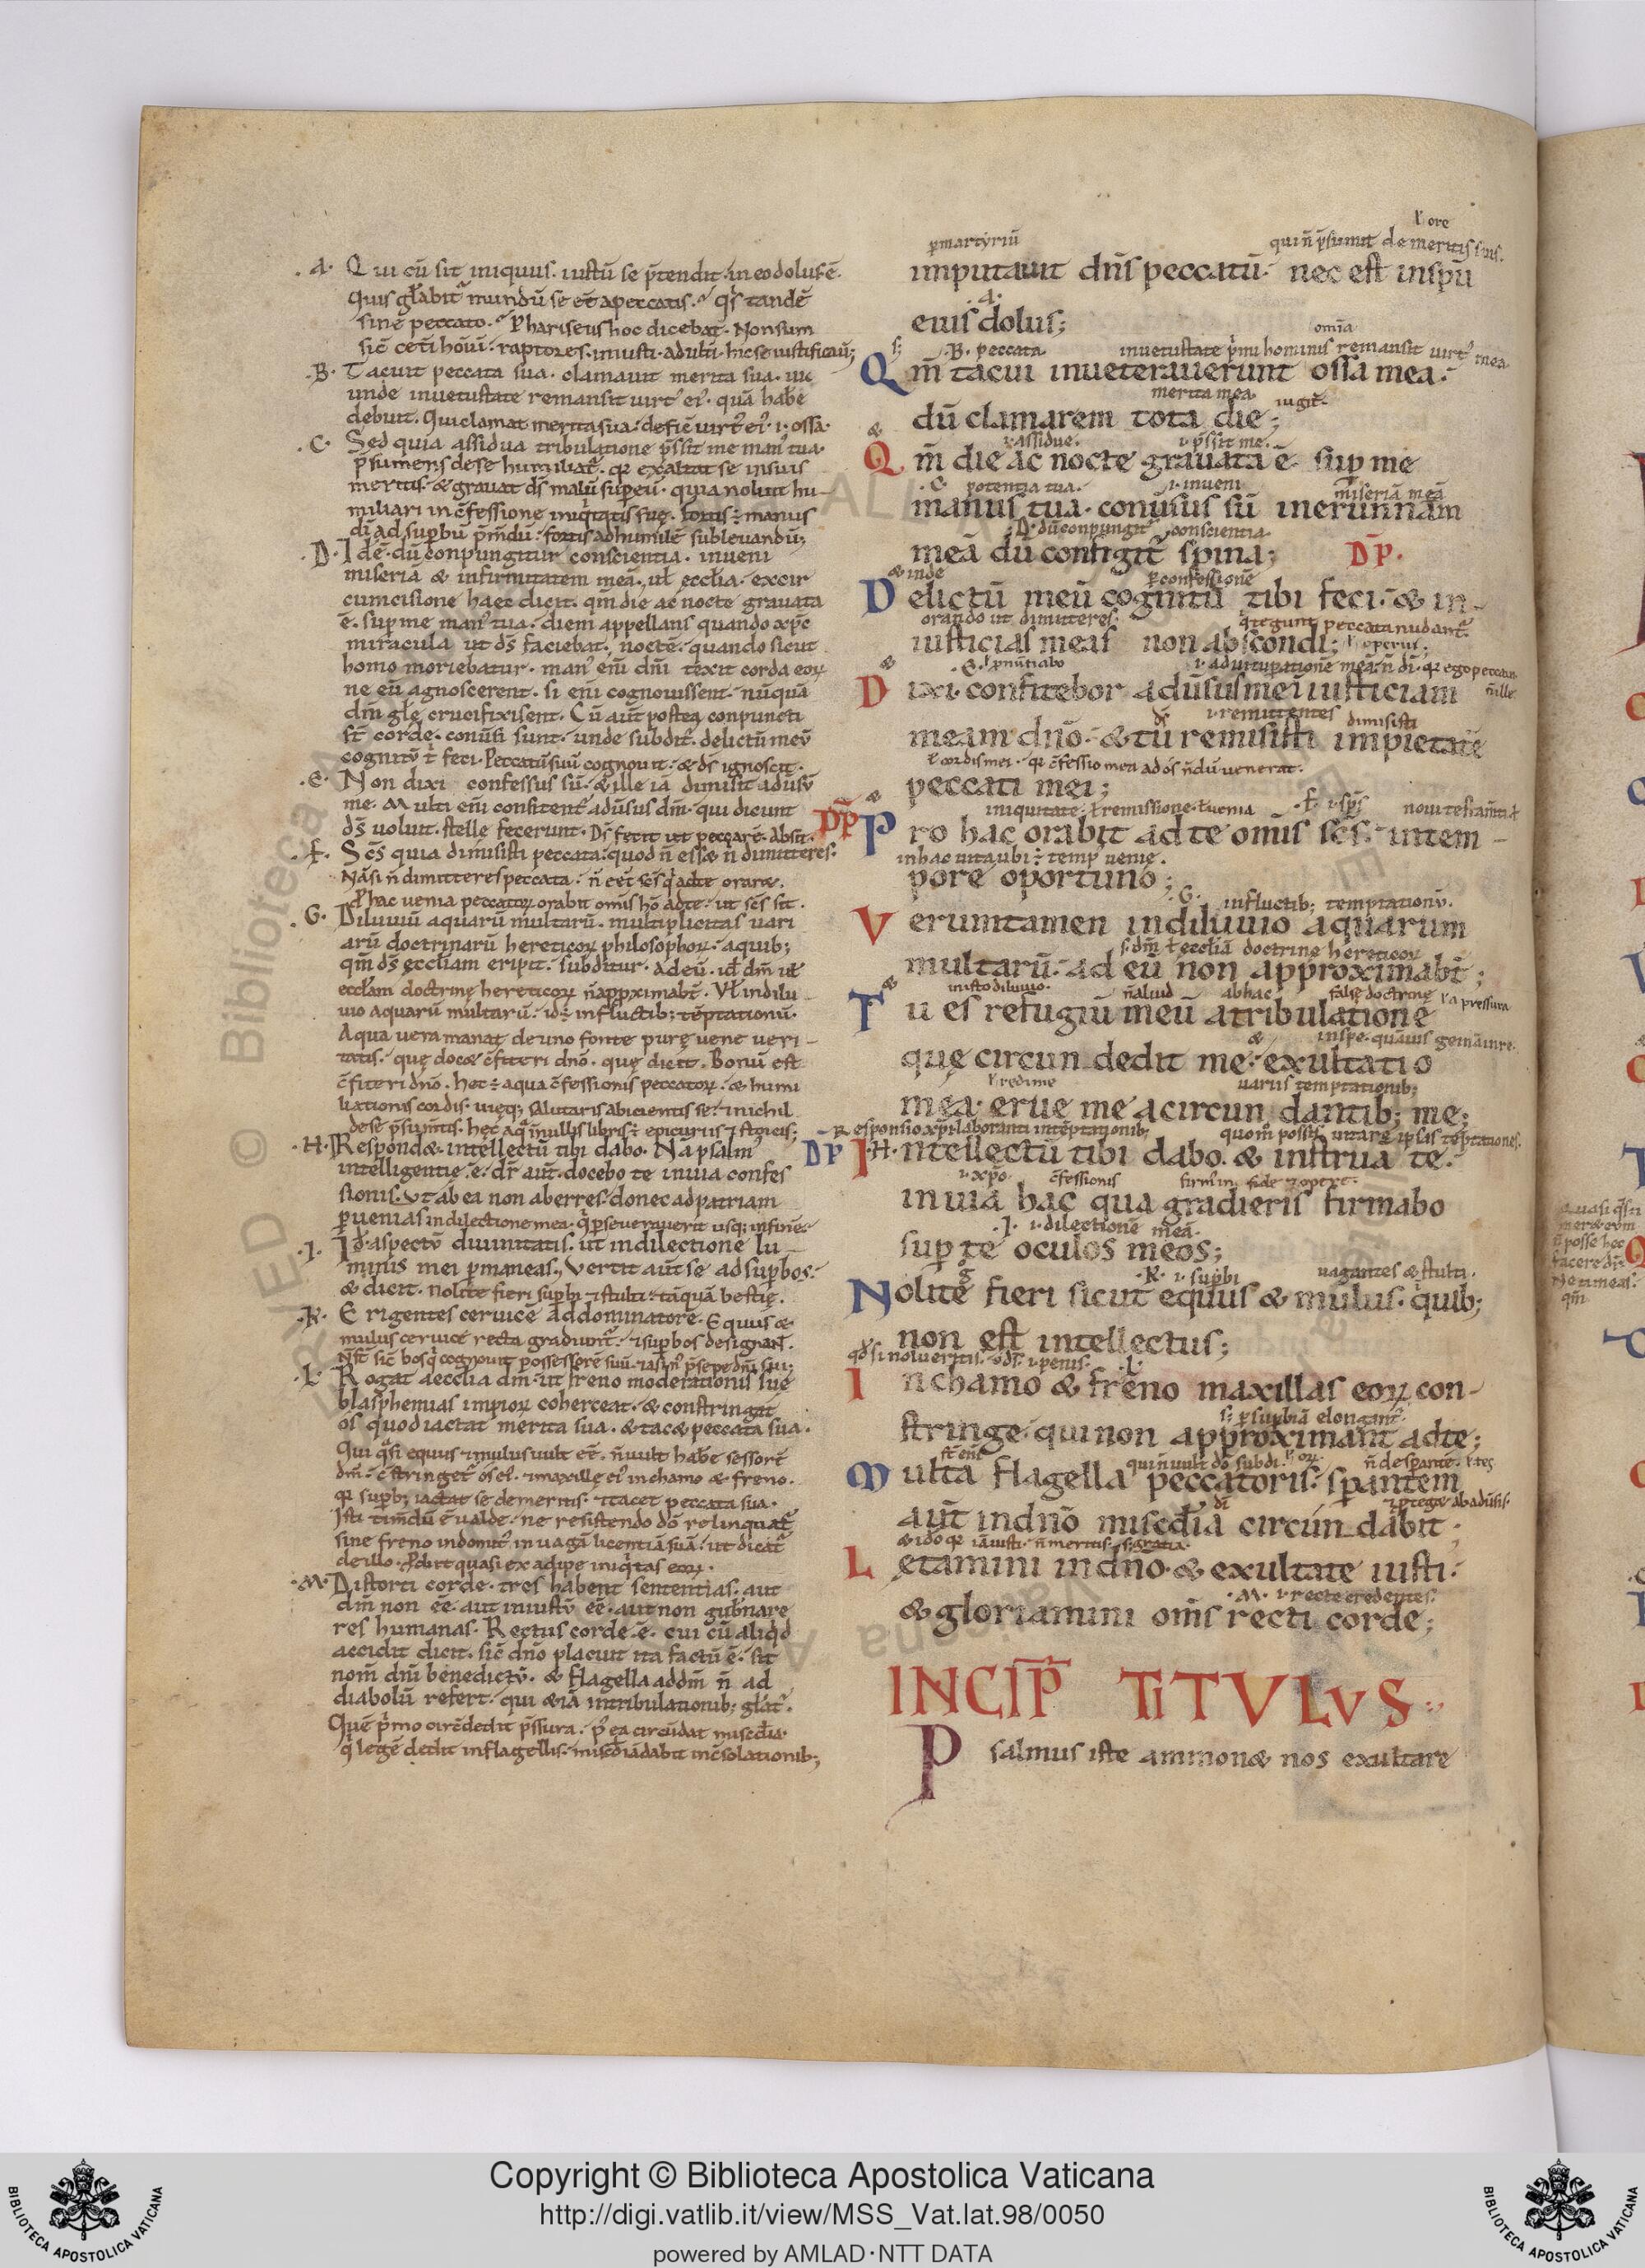 .A. Qui cū sit iniquus. iustū se p̄tendit. in eo dolus ē.
Quis gl̄abit᷑ mundū se eē a peccatis. q̄s tandē
sine peccato. Phariseus hoc dicebat. Non sum
sic̄ cet̄i hōīū. raptores. iniusti. adult̄i.
.B. Tacuit peccata sua. clamauit merita sua.
unde inuetustate remansit uirt᷒ ei᷒. quā habe
debuit. Qui clamat merita sua. defic̄ uirt᷒ ei᷒. i. ossa.
.C. Sed quia assidua tribulatione p̄ssit me man᷒ tua.
p̄sumens de se humiliat᷑. qr exaltat se in suis
meritis. & grauat ds̄ malū sup eū. quia noluit hu-
miliari in c̄fessione iniq̇tatis suę. fortis ÷ manus
dī ad supbū p̄m̄dū. fortis ad humilē subleuandū;
.D. Idē. dū conpungitur conscientia. inueni
miseriā & infirmitatem meā. ul̄ ęccl̄ia. ex cir
cumcisione haec dicit. qm̄ die ac nocte grauata
ē. sup me man᷒ tua. diem appellans quando xp̄c
miracula ut ds̄ faciebat. noctē. quando sicut
homo moriebatur. man᷒ eni dn̄i texit corda eoꝝ
ne eū agnoscerent. si eni cognouissent. nūquā
dn̄m gl̄ę crucifixissent. Cū aūt postea conpuncti
st̄ corde. conūsi sunt. unde subdit᷑. delictū meū
cognitū t᷒ feci. Peccatū suū cognouit. & ds̄ ignoscit.
.E. Non dixi confessus sū. & ille iā dimisit adusū
me. Multi eni confitent᷑ adūsus dn̄m. qui dicunt
ds̄ uoluit. stelle fecerunt. Ds̄ fecit ut peccarē. Absit.
.F. Scs̄ quia dimisisti peccata. quod n̄ esset n̄ dimitteres.
Nā si n̄ dimitteres peccata. n̄ eēt scs̄ q̇ ad te oraret.
P hac uenia peccatoꝝ orabit omīs hō ad te. ut scs̄ sit.
.G. Diluuiū aquarū multarū. multiplicitas uari
arū doctrinarū hereticoꝝ philosophoꝝ. a quib;
qm̄ ds̄ ęccl̄iam eripit. subditur. ad eū. id ÷ dn̄m ul̄
eccl̄am doctrinę hereticoꝝ n̄ appximabt̄. Vl̄ in dilu
uio aquarū multarū. id ÷ in fluctib; tēptationū.
Aqua uera manat de uno fonte purę uenę ueri-
tatis. quę docet c̄fiteri dn̄o. quę dicit. Bonū est
c̄fiteri dn̄o. hec ÷ aqua c̄fessionis peccatoꝝ. & humi
liationis cordis. uitęq; salutaris abicientis se. & nichil
de se p̄sumentis. hec aq̄ in nullis libris ÷ epicuriis & stoicis;
.H. Respondet. intellectū tibi dabo. Nā psalm᷒
intelligentię ē. dr̄ aūt. docebo te in uia confes
sionis. ut ab ea non aberres. donec ad patriam
puenias in dilectione mea. q̇ pseuerauerit usq; in finē.
.I. Id ÷ aspectū diuinitatis. ut in dilectione lu-
minis mei pmaneas. Vertit aūt se ad supbos.
& dicit. Nolite fieri supbi & stulti. tāquā bestię.
.K. Erigentes ceruicē ad dominatorē. Equus &
mulus ceruice recta gradiunt᷑. & supbos designant.
N st̄ sic̄ bos q̇ cognouit possessorē suū. & asin᷒ p̄sepe dn̄i sui;
.L. Rogat aecclia dn̄m. ut freno moderationis suę
blasphemias impioꝝ coherceat. & constringat
os quod iactat merita sua. & tacet peccata sua.
Qui q̄si equus & mulus uult eē. n̄ uult habe sessorē
dn̄m. c̄stringet᷑ os ei᷒. & maxillę ei᷒ in chamo & freno.
qr supb; iactat se de meritis. & tacet peccata sua.
Isti tim̄dū ē ualde. ne resistendo dō relinquat᷑
sine freno indomit᷒ in uagā licentiā suā. ut dicat᷑
de illo. Pdiit quasi ex adipe iniq̇tas eoꝝ.
.M. Distorti corde. tres habent sententias. aut
dm̄ non eē. aut iniustū eē. aut non gub̄nare
res humanas. Rectus corde. ē. cui cū aliq̇d
accidit dicit. sic̄ dn̄o placuit ita factū ē. sit
nom̄ dn̄i benedictū. & flagella ad dn̄m n̄ ad
diabolū refert. qui & iā in tribulationib; gl̄at᷑.
Quē p̄mo circ̄dedit p̄ssura. p᷒ ea circūdat misc̄dia.
q̇ legē dedit in flagellis. misc̄diā dabit in c̄solationib;
l̄ ore
p martyriū
qui n̄ p̄sumit de meritis suis.
imputauit dn̄s peccatū. nec est in sp̄u
.A.
eius dolus;
omīa
s; .B. peccata. inuetustate p̄mi hominis remansit uirt᷒ mea
Qm̄ tacui inueterauerunt ossa mea.
merita mea. iugit̄.
dū clamarem tota die;
& i assidue. i p̄ssit me.
Qm̄ die ac nocte grauata ē sup me
.C. potentia tua. i inueni miseriā meā
manus tua. conūsus sū in erumnam
.D. dū conpungit᷑ conscientia.
meā dū configit᷑ spina; DP.
& inde p confessionē
Delictū meū cognitū tibi feci. & in-
orando ut dimitteres. q̄ tegunt peccata nudant᷑.
iusticias meas non abscondi; l̄ operui;
& .E. l̄ pnuntiabo i aduituperationē meā. n̄ dī. qr ego peccaui n̄ ille
Dixi. confitebor adūsus mei iusticiam
ds̄ i remittentes dimisisti
meam dn̄o. & tū remisisti impietatē
l̄ cordis mei. qr c̄fessio mea ad os n̄dū uenerat.
peccati mei;
& iniquitate. l̄ remissione. l̄ uenia .F. i sp̄s noui testam̄ti
DP Pro hac orabit ad te omīs scs̄. in tem-
in hac uita ubi ÷ temp᷒ uenię.
pore oportuno;
.G. in fluctib; temptationū.
Verumtamen in diluuio aquarum
s. dm̄ l̄ ęccliā doctrinę hereticoꝝ
multarū. ad eū non approximabt̄;
& in isto diluuio. n̄ aliud ab hac falsę doctrinę l̄ a pressura
Tu es refugiū meū a tribulatione
& in spe. quāuis gemā in re.
quę circun dedit me. exultatio
l̄ redime uariis temptationib;
mea. erue me a circun dantib; me;
Responsio xp̄i laboranti in tēptationib; quom̄ possit᷑ uitare ipsas tēptationes.
DP .H. Intellectū tibi dabo. & instrua te.
i xp̄o. c̄fessionis firm᷒ in fide & opere.
in uia hac qua gradieris firmabo
.I. i dilectionē meā.
sup te oculos meos;
g .K. i supbi uagantes & stulti.
Nolite fieri sicut equus & mulus. quib;
non est intellectus;
qd̄ si nolueritis. i penis. .L.
In chamo & freno maxillas eoꝝ con-
s; p supbiā elongant᷑.
stringe. qui non approximant ad te;
st̄ eni qui n̄ uult dō subdi. l̄ oꝝ. n̄ despantē. l̄ tes
Multa flagella peccatoris. spantem
dī & p̄teget ab adūsis.
aūt in dn̄o misc̄dia circun dabit;
& ido qr iā iusti. n̄ meritis. s; gratia.
Letamini in dn̄o. & exultate iusti.
.M. i recte credentes.
& gloriamini omīs recti corde;
INCIP̄ TITVLVS.
Psalmus iste ammonet nos exultare
Quasi q̄s
n̄ posse hec
facere dī.
Ne timeas.
qm̄
Copyright © Biblioteca Apostolica Vaticana
http://digi.vatlib.it/view/MSS_Vat.lat.98/0050
powered by AMLAD·NTT DATA
BIBLIOTECA APOSTOLICA VATICANA
BIBLIOTECA APOSTOLICA VATICANA